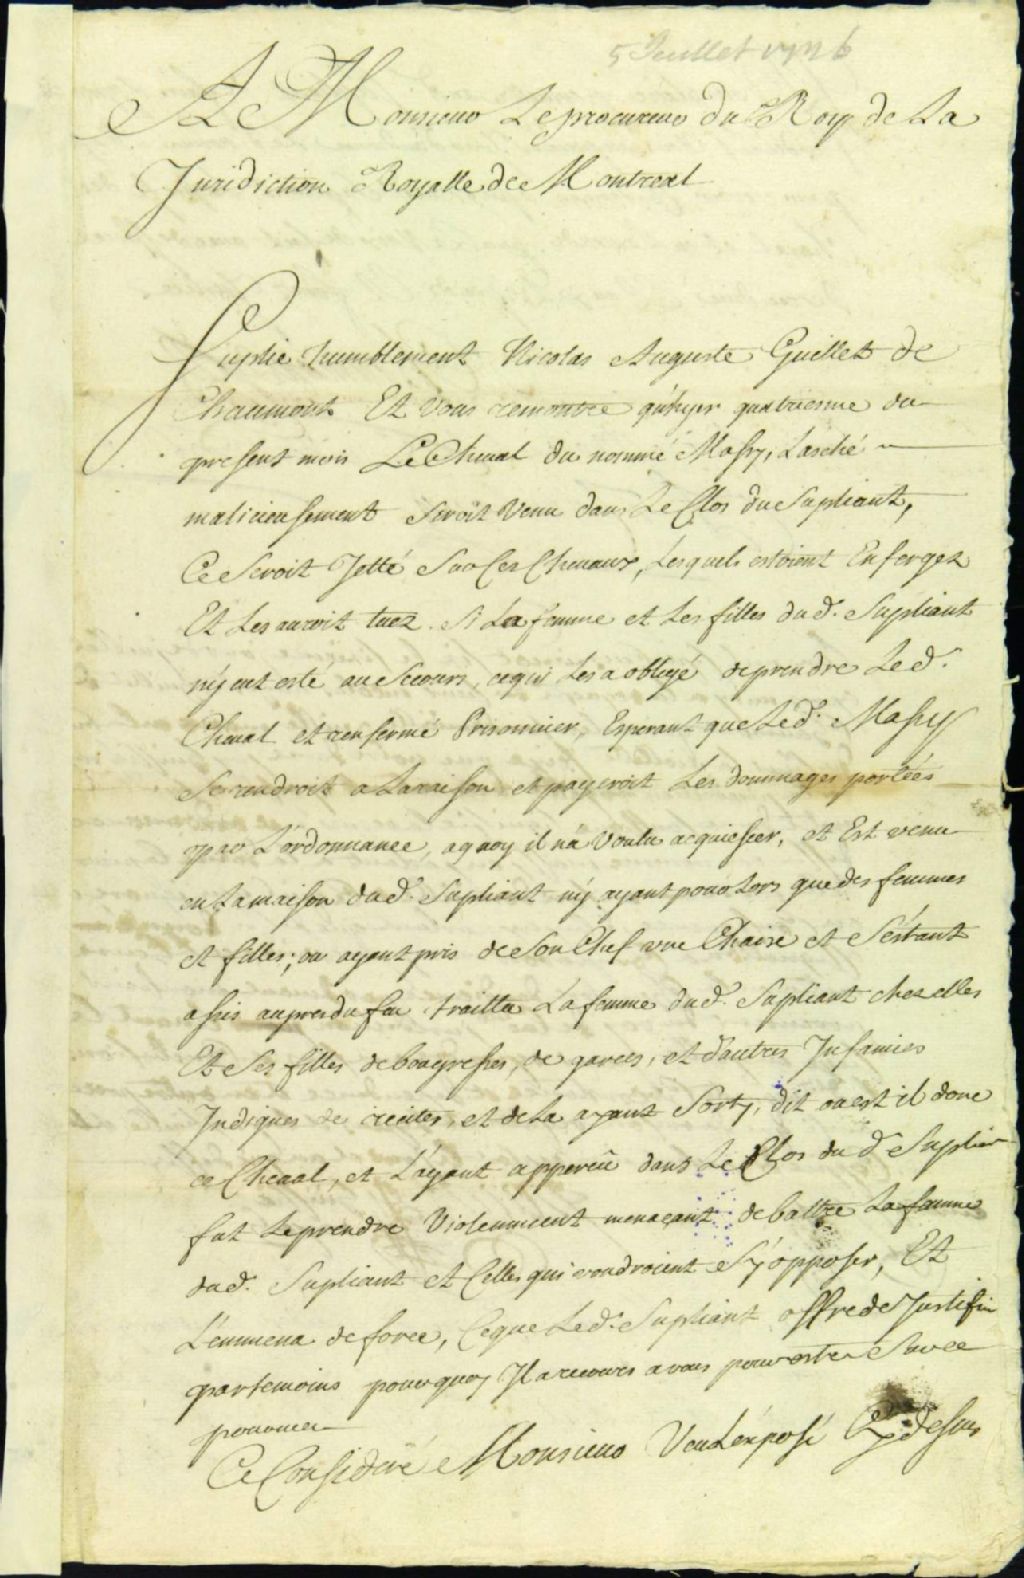 5 Juillet 1726
A Monsieur Le procureur du Roy de La
Juridiction Royalle de Montreal
Suplie humblement Nicolas Auguste Guillet de
Chaumont Et vous remontre qu'hyer quatriesme du
present mois Le Cheval du nommé Massy, Lasché
malicieusement seroit venu dans Le Clos du Supliant,
Ce seroit Jetté sur Ces Chevaux, Lesquels estoient Enfergez
Et Les auroit tuez Si La femme et Les filles dud. Supliant
n'y eut esté au secours, ce qui Les a obligé de prendre Led.
Cheval et renfermé Prisonnier, Esperant que Led. Massy
Se rendroit a La raison et payeroit Les dommages portées
par L'ordonnance, a quoy il n'a voulu acquiescer, et Est venu
en La maison dud. Supliant n'y ayant pour Lors que des femmes
et filles; ou ayant pris de Son Chef une Chaire et S'estant
assis aupres du feu traitta La femme dud. Supliant chez elles
Et Ses filles de bougresses, de garces, et d'autres Infamies
Indignes de reciter, et de La ayant Sorty, dit ou est il donc
ce Cheval, et L'ayant apperçû dans Le Clos du d. Suplian
fut Le prendre Violemment menaçant de battre La femme
dud. Supliant et Celles qui voudroient S'y opposer, Et
L'emmena de force, Ce que Led. Supliant offre de Justifier
par temoins pourquoy Il a recours a vous pour estre Sur ce
pourveu
Ce Consideré Monsieur Veu L'exposé Cy dessus